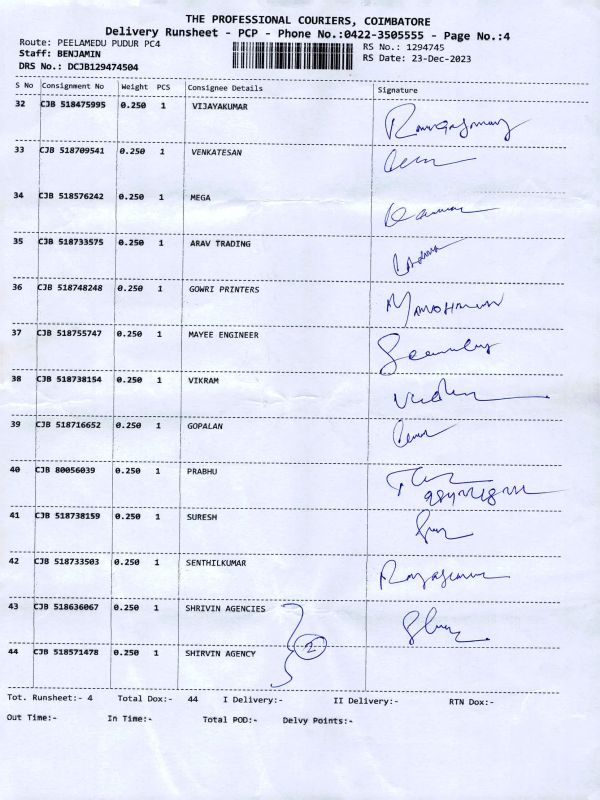 THE PROFESSIONAL COURIERS, COIMBATORE
Delivery Runsheet - PCP - Phone No.:0422-3505555 - Page No.:4
Route: PEELAMEDU PUDUR PC4 RS No.: 1294745
Staff: BENJAMIN RS Date: 23-Dec-2023
DRS No.: DCJB129474504
S No Consignment No Weight PCS Consignee Details Signature
32 CJB 518475995 0.250 1 VIJAYAKUMAR
33 CJB 518709541 0.250 1 VENKATESAN
34 CJB 518576242 0.250 1 MEGA
35 CJB 518733575 0.250 1 ARAV TRADING
36 CJB 518748248 0.250 1 GOWRI PRINTERS
37 CJB 518755747 0.250 1 MAYEE ENGINEER
38 CJB 518738154 0.250 1 VIKRAM
39 CJB 518716652 0.250 1 GOPALAN
40 CJB 80056039 0.250 1 PRABHU
41 CJB 518738159 0.250 1 SURESH
42 CJB 518733503 0.250 1 SENTHILKUMAR
43 CJB 518636067 0.250 1 SHRIVIN AGENCIES
2
44 CJB 518571478 0.250 1 SHIRVIN AGENCY
Tot. Runsheet:- 4 Total Dox:- 44 I Delivery:- II Delivery:- RTN Dox:-
Out Time:- In Time:- Total POD:- Delvy Points:-